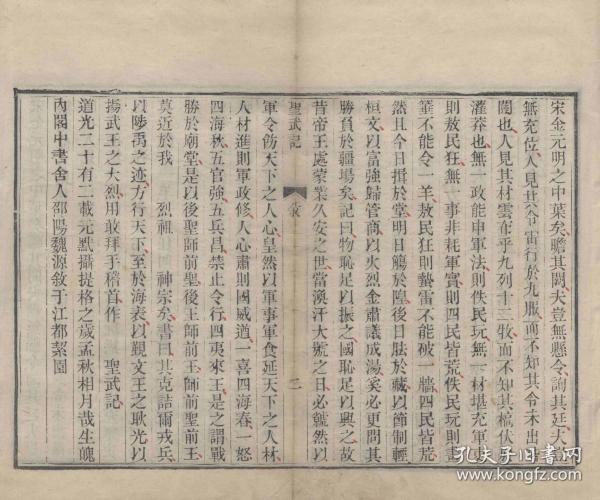 宋金元明之中葉矣瞻其闕夫豈無懸令詢其廷夫豈
無充位人見其令雷行於九服而不知其令未出階
闥也人見其材雲布乎九列十三牧而不知其槁伏於
灌莽也無一政能申軍法則佚民玩無一材堪充軍吏
則敖民狂無一事非耗軍實則四民皆荒佚民玩則畫
箠不能令一羊敖民狂則蟄雷不能破一牆四民皆荒
然且今日揖於堂明日觴於隍後日胠於藏以節制輕
桓文以富強歸管商以火烈金肅議成湯奚必更問其
勝負於疆場矣記曰物恥足以振之國恥足以興之故
昔帝王處蒙業久安之世當渙汗大號之日必虩然以
聖武記
敘
三
軍令飭天下之人心皇然以軍事軍食延天下之人材
人材進則軍政修人心肅則國威遒一喜四海春一怒
四海秋五官強五兵昌禁止令行四夷來王是之謂戰
勝於廟堂是以後聖師前聖後王師前王師前聖前王
莫近於我 烈祖 神宗矣書曰其克詰爾戎兵
以陟禹之迹方行天下至於海表以覲文王之耿光以
揚武王之大烈用敢拜手稽首作 聖武記
道光二十有二載元默攝提格之歲孟秋相月哉生魄
內閣中書舍人邵陽魏源敘于江都絜園
孔夫子旧书网
www.kongfz.com